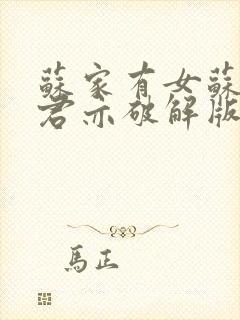 蘇家有女蘇
君亦破解版
馬正